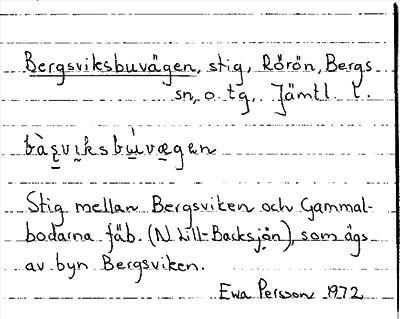 Bergsviksbuvägen, stig, Rörön, Bergs
sn, o. tg., Jämtl. l.
bàṣvi̭ksbu̩̇væ̭gæn
Stig mellan Bergsviken och Gammal-
bodarna fäb. (N. Lill-Backsjön), som ägs
av byn Bergsviken.
Ewa Persson 1972